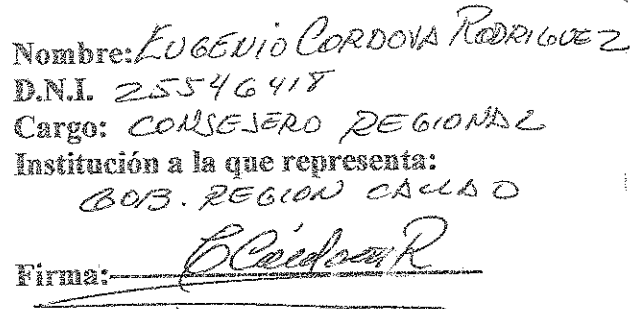 Nombre: EUGENIO CORDOVA RODRIGUEZ
D.N.I. 25546418
Cargo: CONSEJERO REGIONAL
Institución a la que representa:
GOB. REGION CALLAO
Firma: CCórdova R